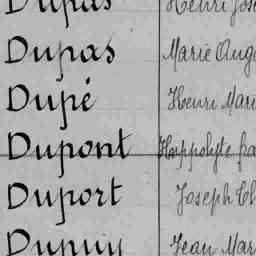 Dupas Henri Jos
Dupas Marie Ang
Dupé Henri Mari
Dupont Hyppolyte fra
Duport Joseph Ch
Dupuy Jean Mar